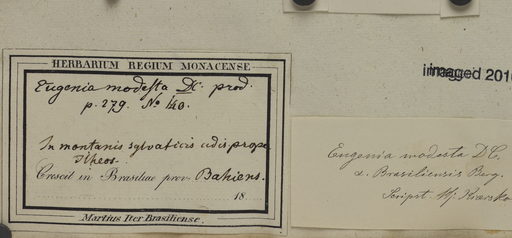 HERBARIUM REGIUM MONACENSE
Eugenia modesta DC. prod.
p. 279. No 140.
In montanis sylvaticis udis prope
Ilheos.
Crescit in Brasiliae prov. Bahiens.
18
Martius Iter Brasiliense.
imaged 201
Eugenia modesta DC.
α. Brasiliensis Berg.
Scripsit Hj. Kiærsko